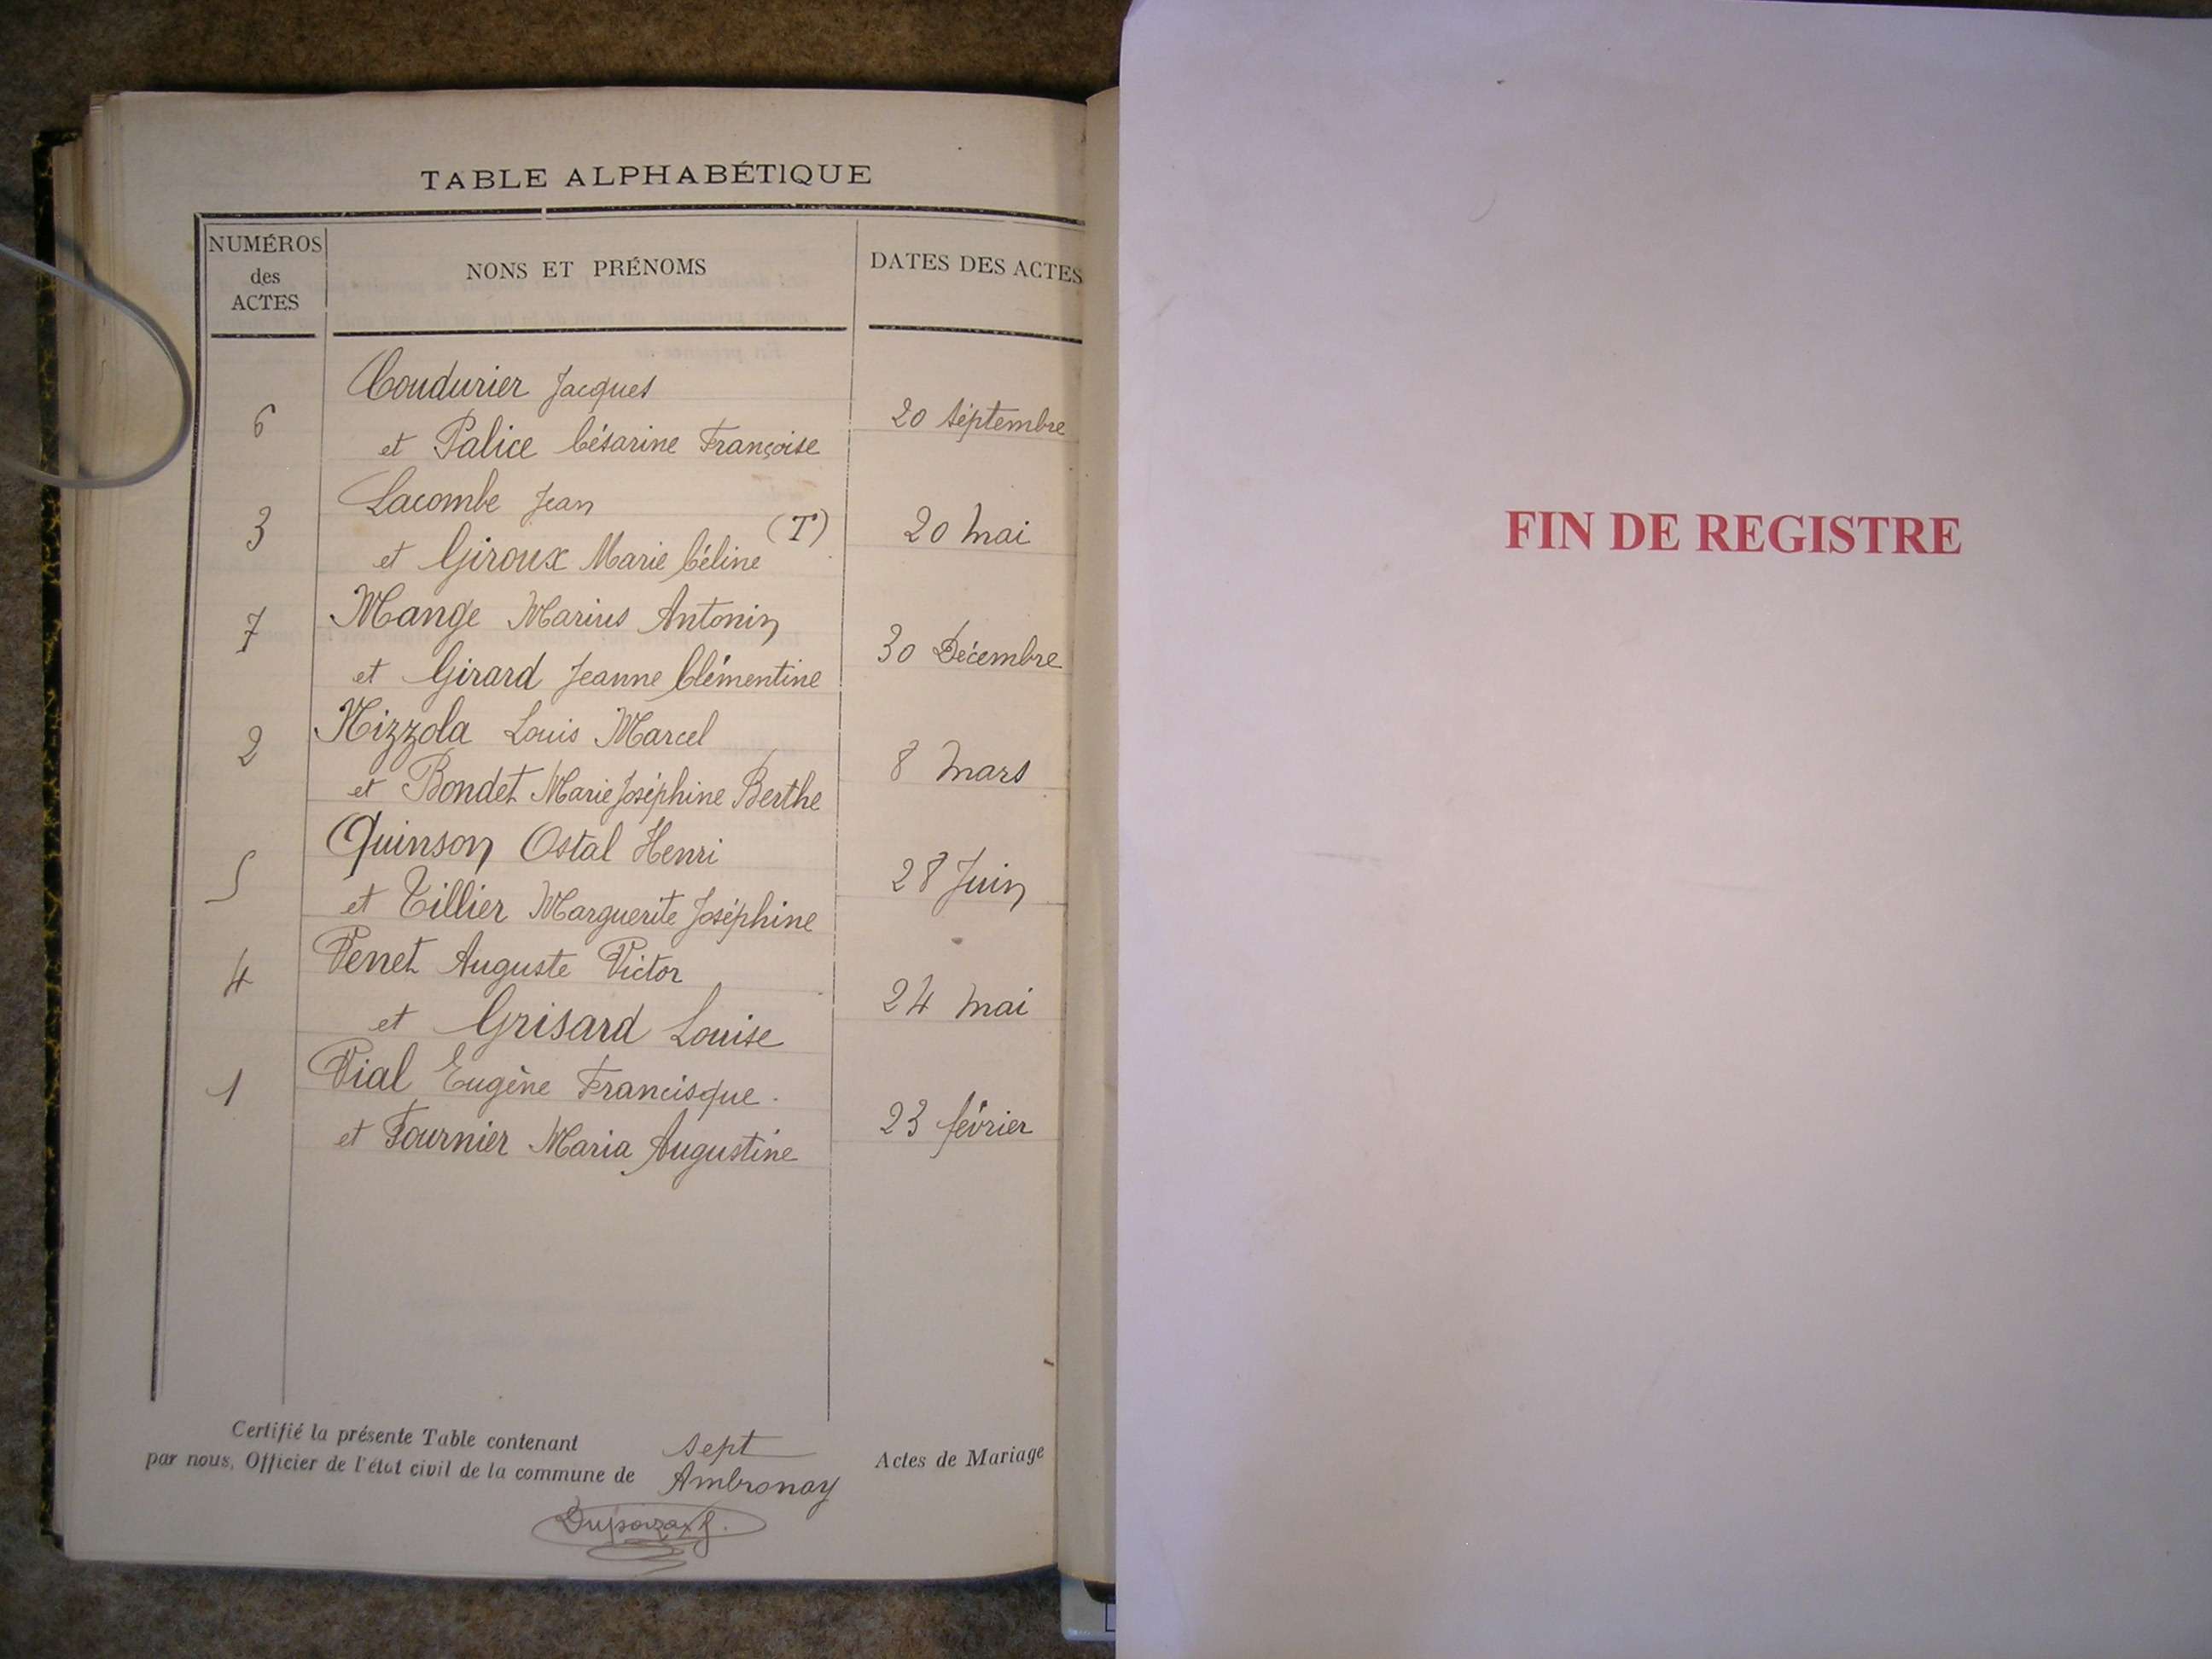 TABLE ALPHABÉTIQUE
NUMÉROS des ACTES
NONS ET PRÉNOMS
DATES DES ACTES
Coudurier Jacques
6 et Palice Césarine Françoise 20 Septembre
Lacombe Jean
3 et Giroux Marie Céline (T) 20 Mai
7 Mange Marius Antonin
et Girard Jeanne Clémentine 30 Décembre
2 Nizzola Louis Marcel
et Bondet Marie Joséphine Berthe 8 Mars
5 Quinson Ostal Henri
et Tillier Marguerite Joséphine 28 Juin
4 Venet Auguste Victor
et Grisard Louise 24 Mai
1 Vial Eugène Francisque
et Fournier Maria Augustine 23 février
Certifié la présente Table contenant sept Actes de Mariage
par nous, Officier de l'état civil de la commune de Ambronay
FIN DE REGISTRE